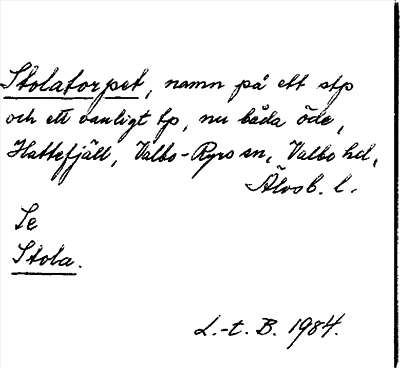 Stolatorpet, namn på ett stp
och ett vanligt tp, nu båda öde,
Hattefjäll, Valbo-Ryrs sn, Valbo hd,
Älvsb. l.
Se
Stola.
L.-t. B. 1984.